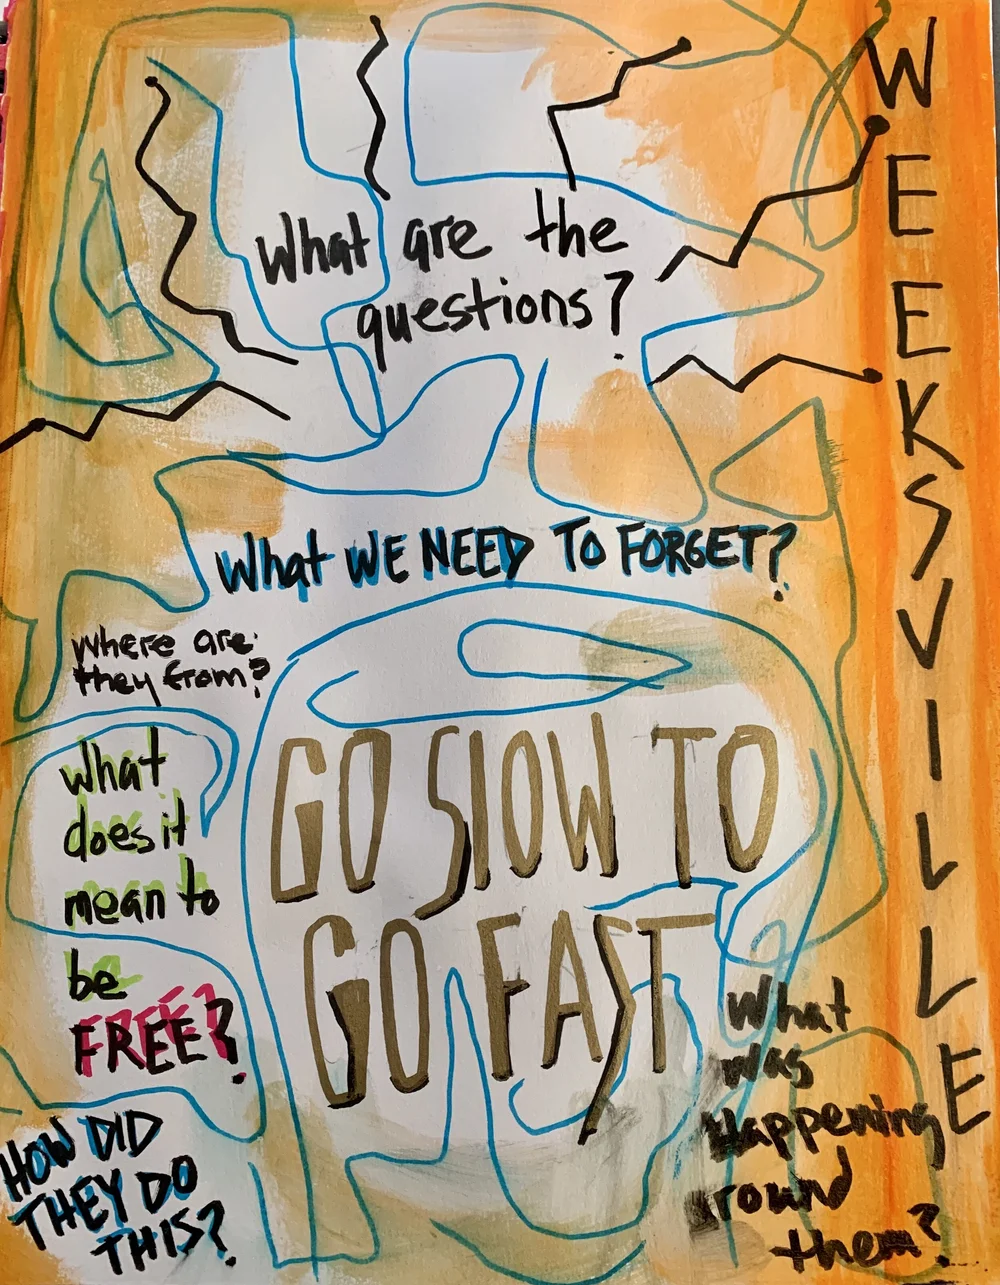 What are the
questions?
What WE NEED TO FORGET?
where are
they from?
what
does it
mean to
be
FREE?
GO SlOW TO
GO FAST
HOW DID
THEY DO
THIS?
What
was
Happening
round
them?
WEEKSVILLE